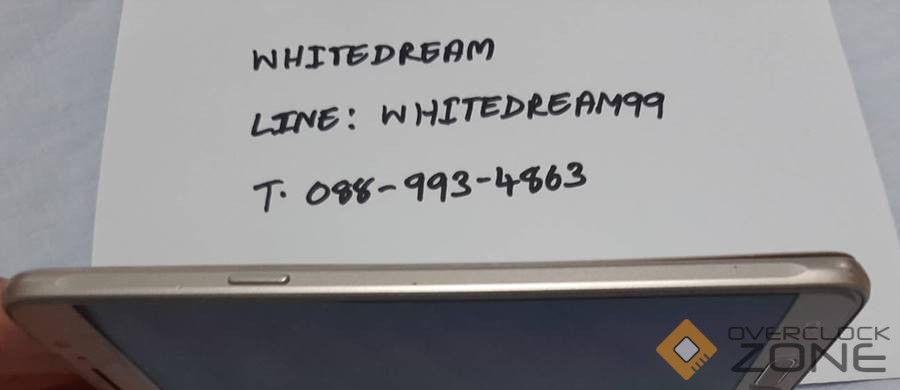 WHITEDREAM
LINE: WHITEDREAM99
T. 088-993-4863
OVERCLOCK
ZONE